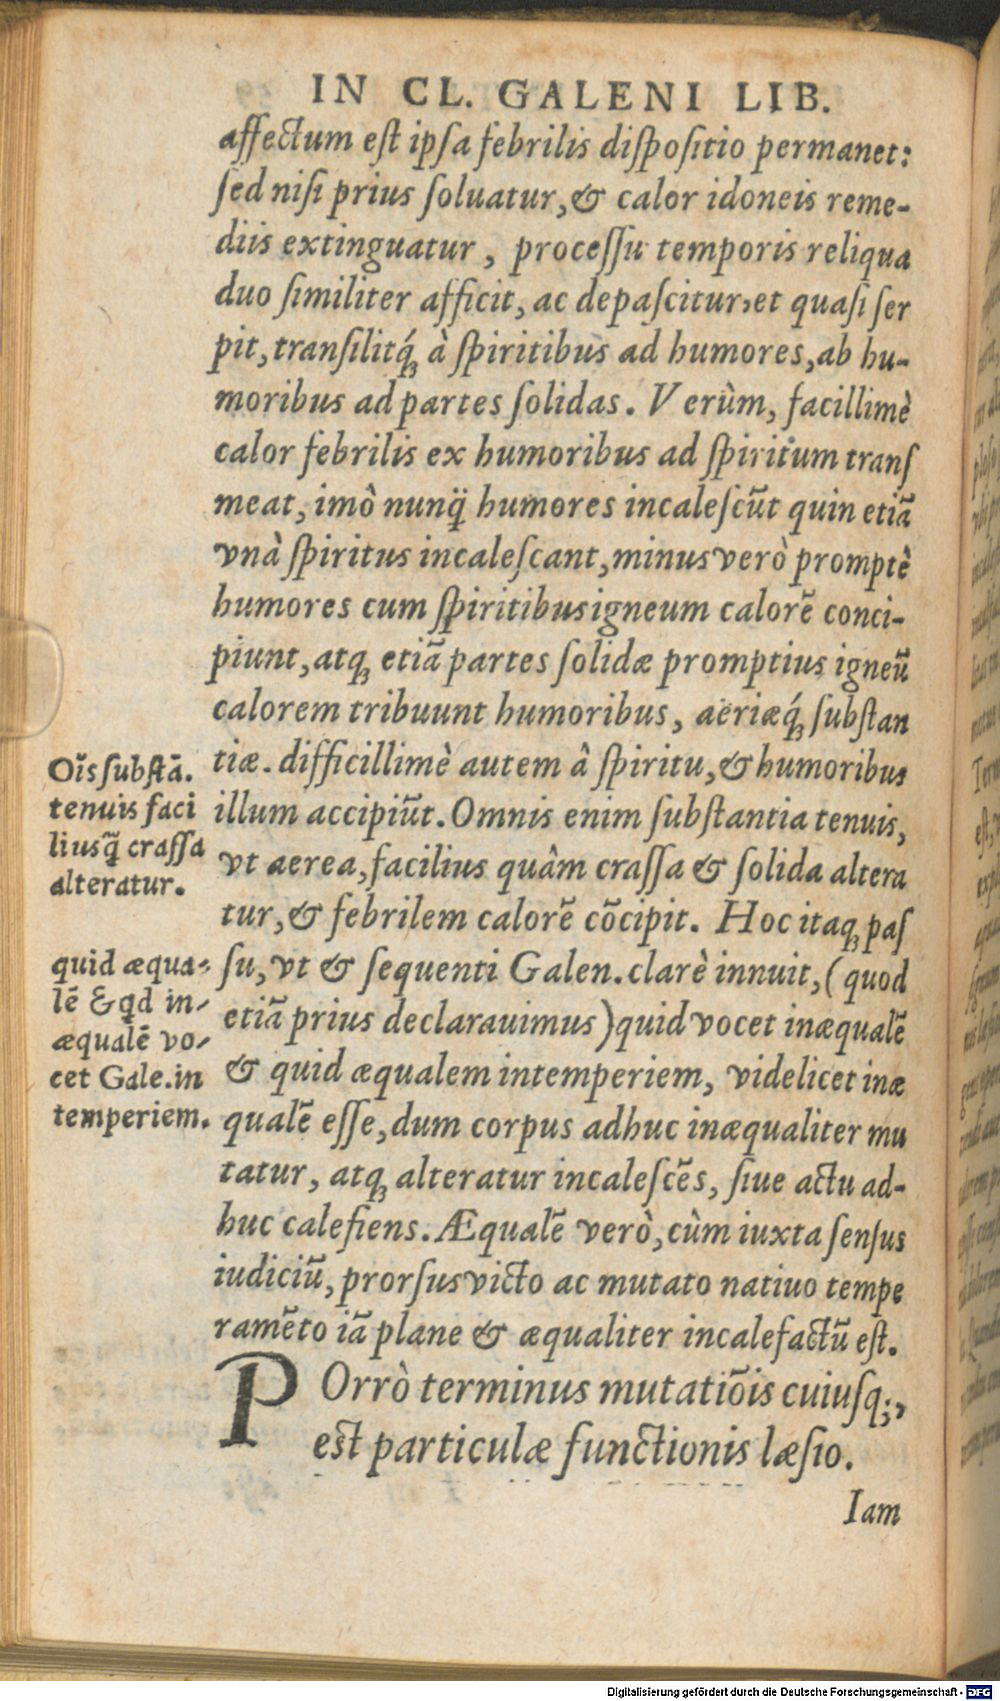 IN CL. GALENI LIB.
affectum est ipsa febrilis dispositio permanet:
sed nisi prius soluatur, & calor idoneis reme-
diis extinguatur, processu temporis reliqua
duo similiter afficit, ac depascitur, et quasi ser
pit, transilitq́; à spiritibus ad humores, ab hu-
moribus ad partes solidas. Verùm, facillimè
calor febrilis ex humoribus ad spiritum trans
meat, imò nunq̃ humores incalescũt quin etiã
vnà spiritus incalescant, minus verò promptè
humores cum spiritibus igneum calorẽ conci-
piunt, atq; etiã partes solidæ promptius igneũ
calorem tribuunt humoribus, aëriæq́; substan
tiæ. difficillimè autem â spiritu, & humoribus
illum accipiũt. Omnis enim substantia tenuis,
vt aerea, facilius quâm crassa & solida altera
tur, & febrilem calorẽ cõcipit. Hoc itaq; pas
su, vt & sequenti Galen. clarè innuit, (quod
etiã prius declarauimus) quid vocet inæqualẽ
& quid æqualem intemperiem, videlicet inæ
qualẽ esse, dum corpus adhuc inæqualiter mu
tatur, atq; alteratur incalescẽs, siue actu ad-
huc calefiens. Æqualẽ verò, cùm iuxta sensus
iudiciũ, prorsus victo ac mutato natiuo tempe
ramẽto iã plane & æqualiter incalefactũ est.
POrrò terminus mutatiõis cuiusq;,
est particulæ functionis læsio.
Iam
Oĩs substã.
tenuis faci
liusq̃ crassa
alteratur.
quid æqua-
lẽ & qd in-
æqualẽ vo-
cet Gale. in
temperiem.
Digitalisierung gefördert durch die Deutsche Forschungsgemeinschaft - DFG